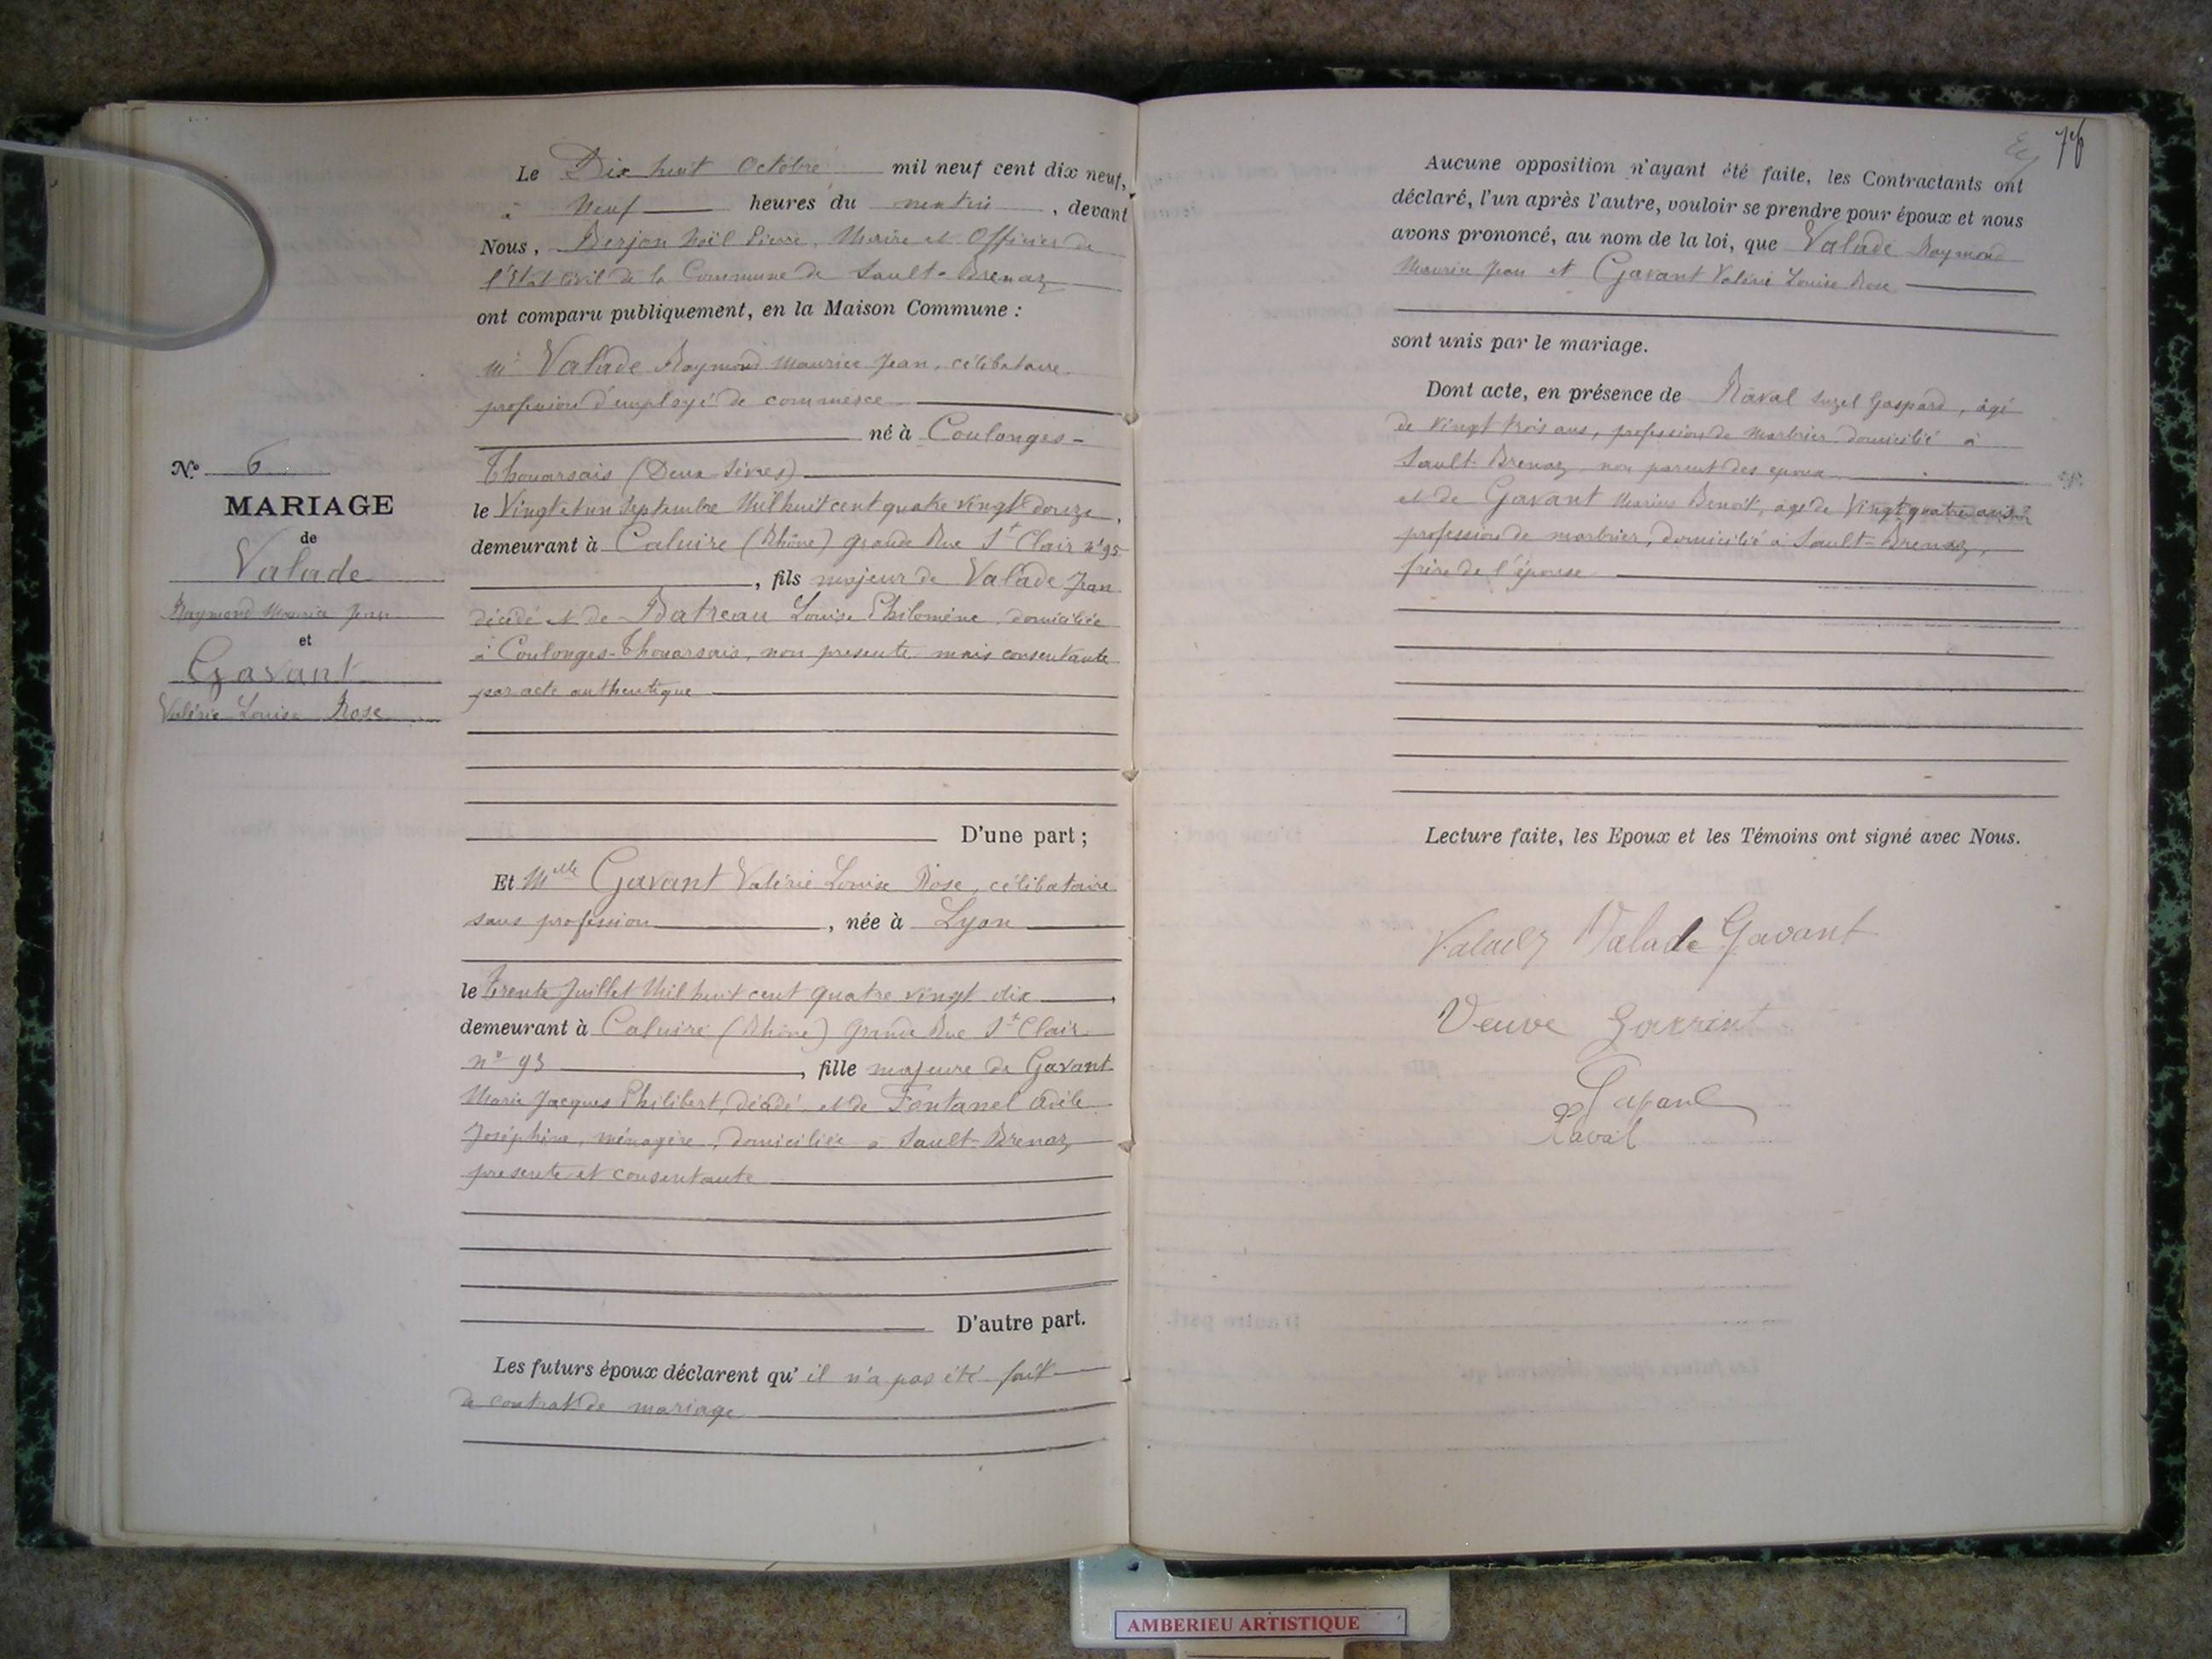 N° 6
MARIAGE
de
Valade
Raymond Maurice Jean
et
Gavant
Valérie Louise Rose
Le Dix huit Octobre mil neuf cent dix neuf,
à Neuf heures du matin, devant
Nous, Berjon Noël Pierre, Maire et Officier de
l'Etat Civil de la Commune de Sault-Brenaz
ont comparu publiquement, en la Maison Commune :
Mr Valade Raymond Maurice Jean, célibataire
profession d'employé de commerce
né à Coulonges-
Thouarsais (Deux Sèvres)
le Vingt et un Septembre Mil huit cent quatre vingt douze,
demeurant à Caluire (Rhône) Grande Rue St Clair n° 95
, fils majeur de Valade Jean
décédé et de Batreau Louise Philomène, domiciliée
à Coulonges-Thouarsais, non présente mais consentante
par acte authentique
D'une part ;
Et Melle Gavant Valérie Louise Rose, célibataire
sans profession, née à Lyon
le trente Juillet Mil huit cent quatre vingt dix,
demeurant à Caluire (Rhône) Grande Rue St Clair
n° 93, fille majeure de Gavant
Marie Jacques Philibert, décédé et de Fontanel Adèle
Joséphine, ménagère, domiciliée à Sault-Brenaz
présente et consentante
D'autre part.
Les futurs époux déclarent qu'il n'a pas été fait
de contrat de mariage
76
Aucune opposition n'ayant été faite, les Contractants ont
déclaré, l'un après l'autre, vouloir se prendre pour époux et nous
avons prononcé, au nom de la loi, que Valade Raymond
Maurice Jean et Gavant Valérie Louise Rose
sont unis par le mariage.
Dont acte, en présence de Raval Gaspard, âgé
de vingt trois ans, profession de marbrier domicilié à
Sault-Brenaz non parent des époux
et de Gavant Marius Benoit, âgé de Vingt quatre ans
profession de marbrier, domicilié à Sault-Brenaz,
frère de l'épouse
Lecture faite, les Epoux et les Témoins ont signé avec Nous.
Valade Valade Gavant
Veuve
Raval
AMBERIEU ARTISTIQUE